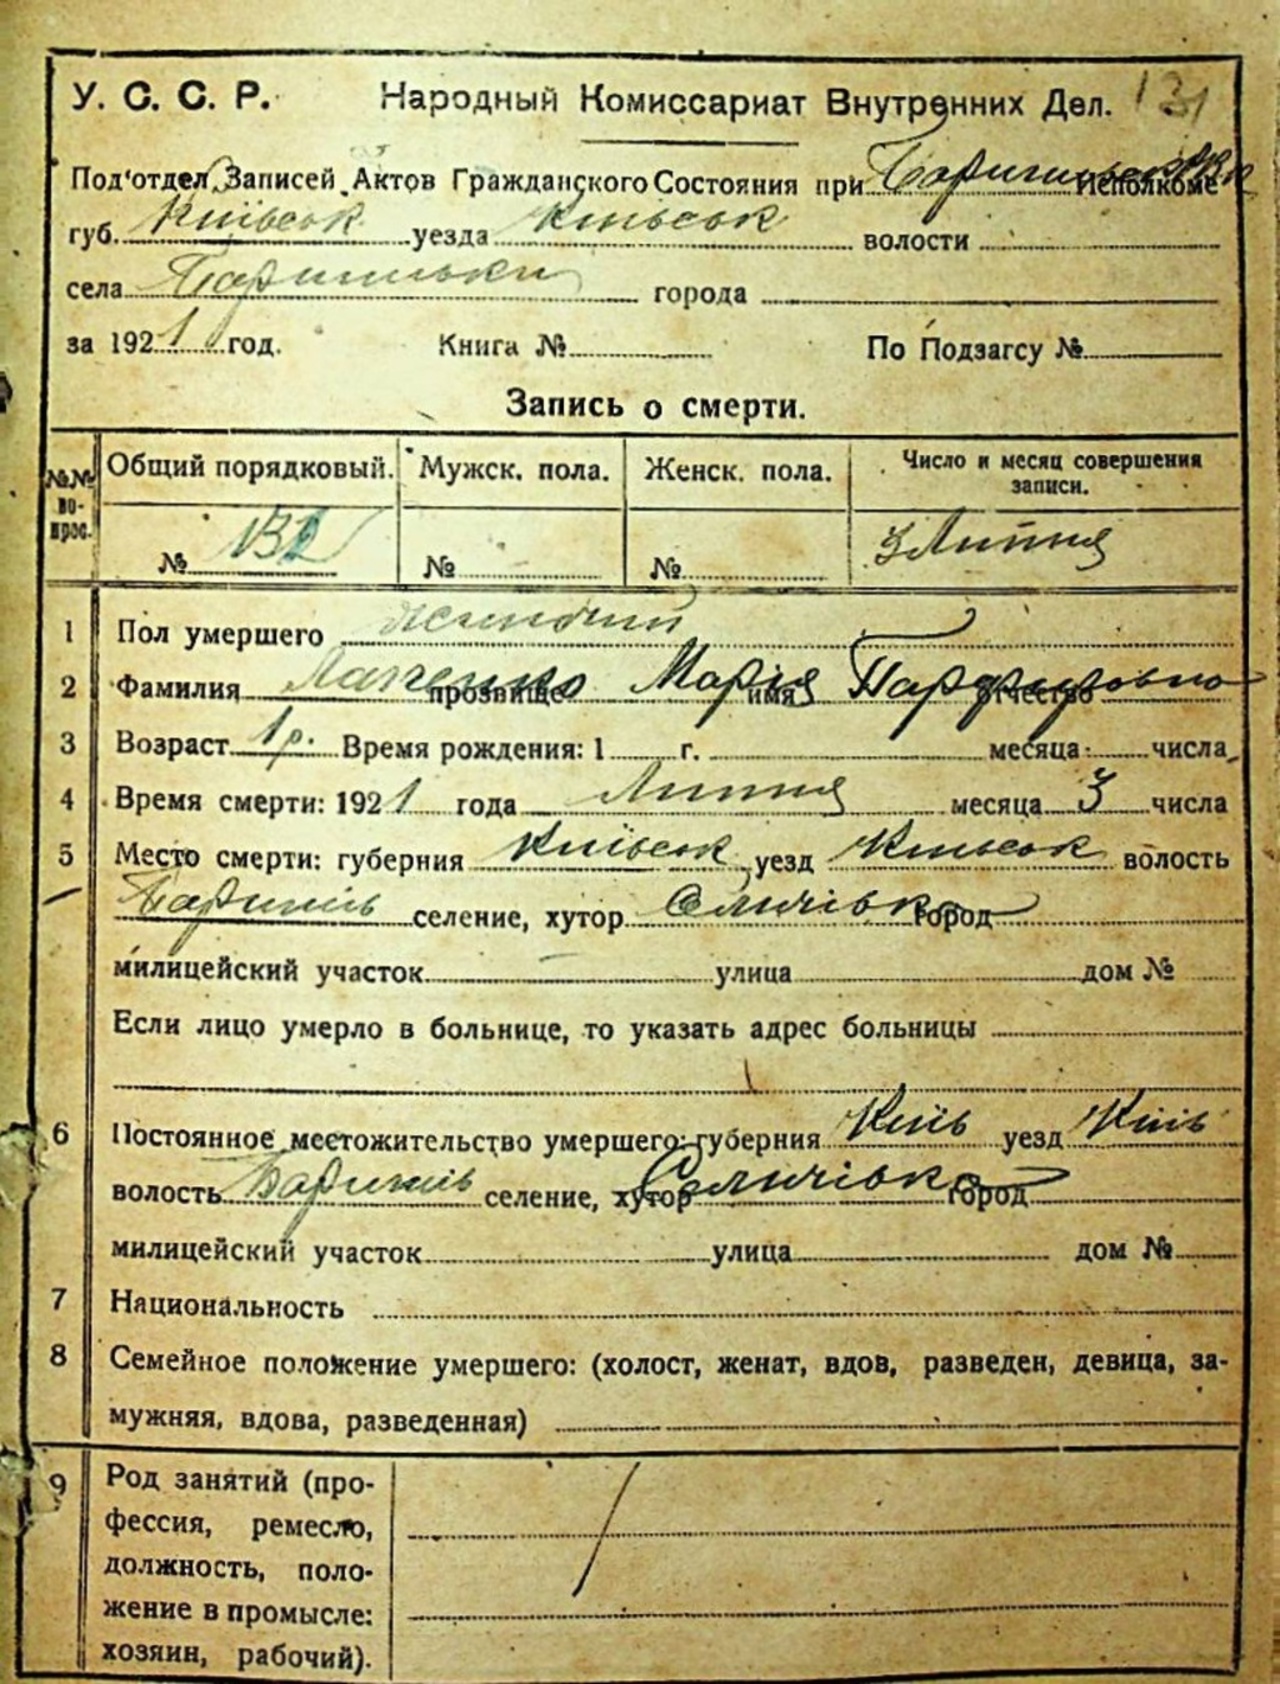 У. С. С. Р. Народный Комиссариат Внутренних Дел. 131
Под'отдел Записей Актов Гражданского Состояния при Исполкоме
губ. Київськ уезда Київськ волости
села Баришівки города
за 1921 год. Книга № По Подзагсу №
Запись о смерти.
№№ вопрос. Общий порядковый. Мужск. пола. Женск. пола. Число и месяц совершения записи.
№ 132 № № 3 Липня
1 Пол умершего жіночий
2 Фамилия прозвище Марія имя отчество
3 Возраст 1 р. Время рождения: 1 г. месяца числа
4 Время смерти: 1921 года Липня месяца 3 числа
5 Место смерти: губерния Київськ уезд Київськ волость
Баришів селение, хутор Селичівка город
милицейский участок улица дом №
Если лицо умерло в больнице, то указать адрес больницы
6 Постоянное местожительство умершего: губерния Київ уезд Київ
волость Баришів селение, хутор Селичівка город
милицейский участок улица дом №
7 Национальность
8 Семейное положение умершего: (холост, женат, вдов, разведен, девица, за-
мужняя, вдова, разведенная)
9 Род занятий (про-
фессия, ремесло,
должность, поло-
жение в промысле:
хозяин, рабочий).